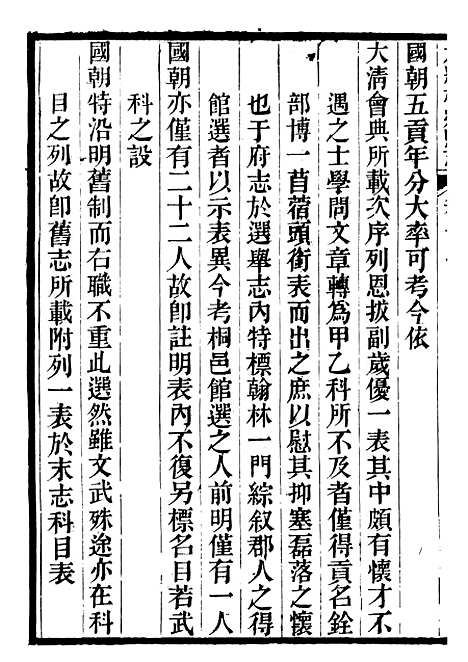 國朝五貢年分大率可考今依
大淸會典所載次序列恩拔副歲優一表其中頗有懷才不
遇之士學問文章轉爲甲乙科所不及者僅得貢名銓
部博一苜蓿頭銜表而出之庶以慰其抑塞磊落之懷
也于府志於選舉志內特標翰林一門綜叙郡人之得
館選者以示表異今考桐邑館選之人前明僅有一人
國朝亦僅有二十二人故卽註明表內不復另標名目若武
科之設
國朝特沿明舊制而右職不重此選然雖文武殊途亦在科
目之列故卽舊志所載附列一表於末志科目表